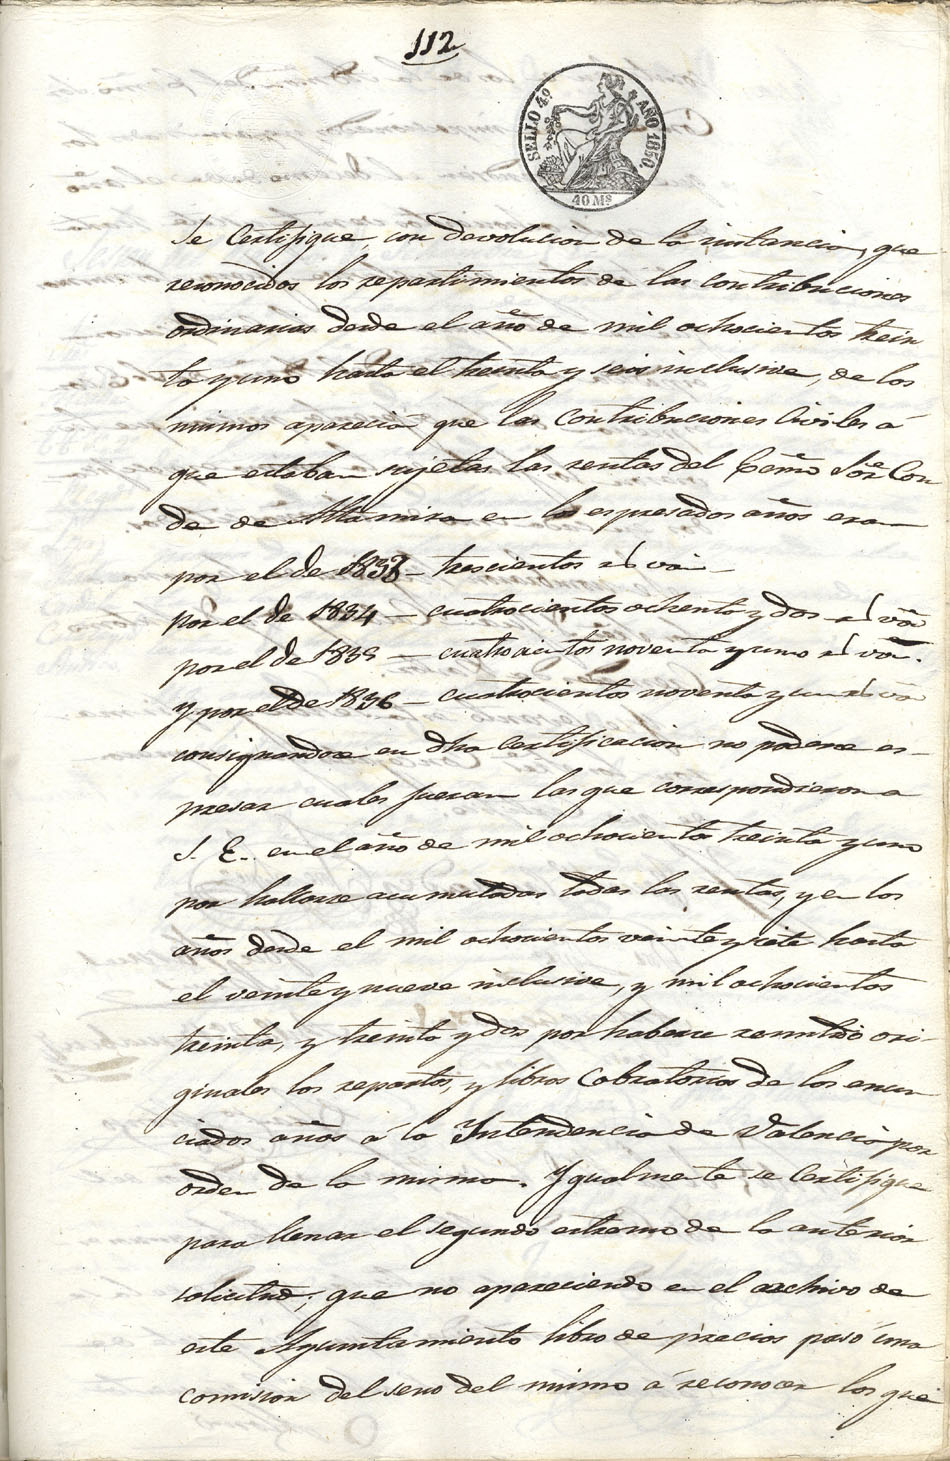 112
SELLO 4º AÑO 1850.
40 Mˢ
Se Certifique, con devolucion de la instancia, que
reconocidos los repartimientos de las contribuciones
ordinarias desde el año de mil ochocientos trein
ta y uno hasta el treinta y seis inclusive, de los
mismos aparecia que las Contribuciones Civiles á
que estaban sujetas las rentas del Exmõ Sor Con
de de Altamira en los espresados años eran
por el de 1833 – trescientos rs von
por el de 1834 – cuatrocientos ochenta y dos rs von
por el de 1835 – cuatrocientos noventa y uno rs von.
y por el de 1836 – cuatrocientos noventa y un rs von
consignandose en dha Certificacion no poderse es-
presar cuales fueran las que correspondieron a
S. E. en el año de mil ochocientos treinta y uno
por hallarse acumuladas todas las rentas, y en los
años desde el mil ochocientos veinte y siete hasta
el veinte y nueve inclusive, y mil ochocientos
treinta, y treinta y dos por haberse remitido ori-
ginales los repartos, y libros Cobratorios de los enun
ciados años á la Intendencia de Valencia por
orden de la misma. Igualmente se Certifique
para llenar el segundo estremo de la anterior
solicitud; que no apareciendo en el archivo de
este Ayuntamiento libro de precios pasó una
comision del seno del mismo á reconocer los que